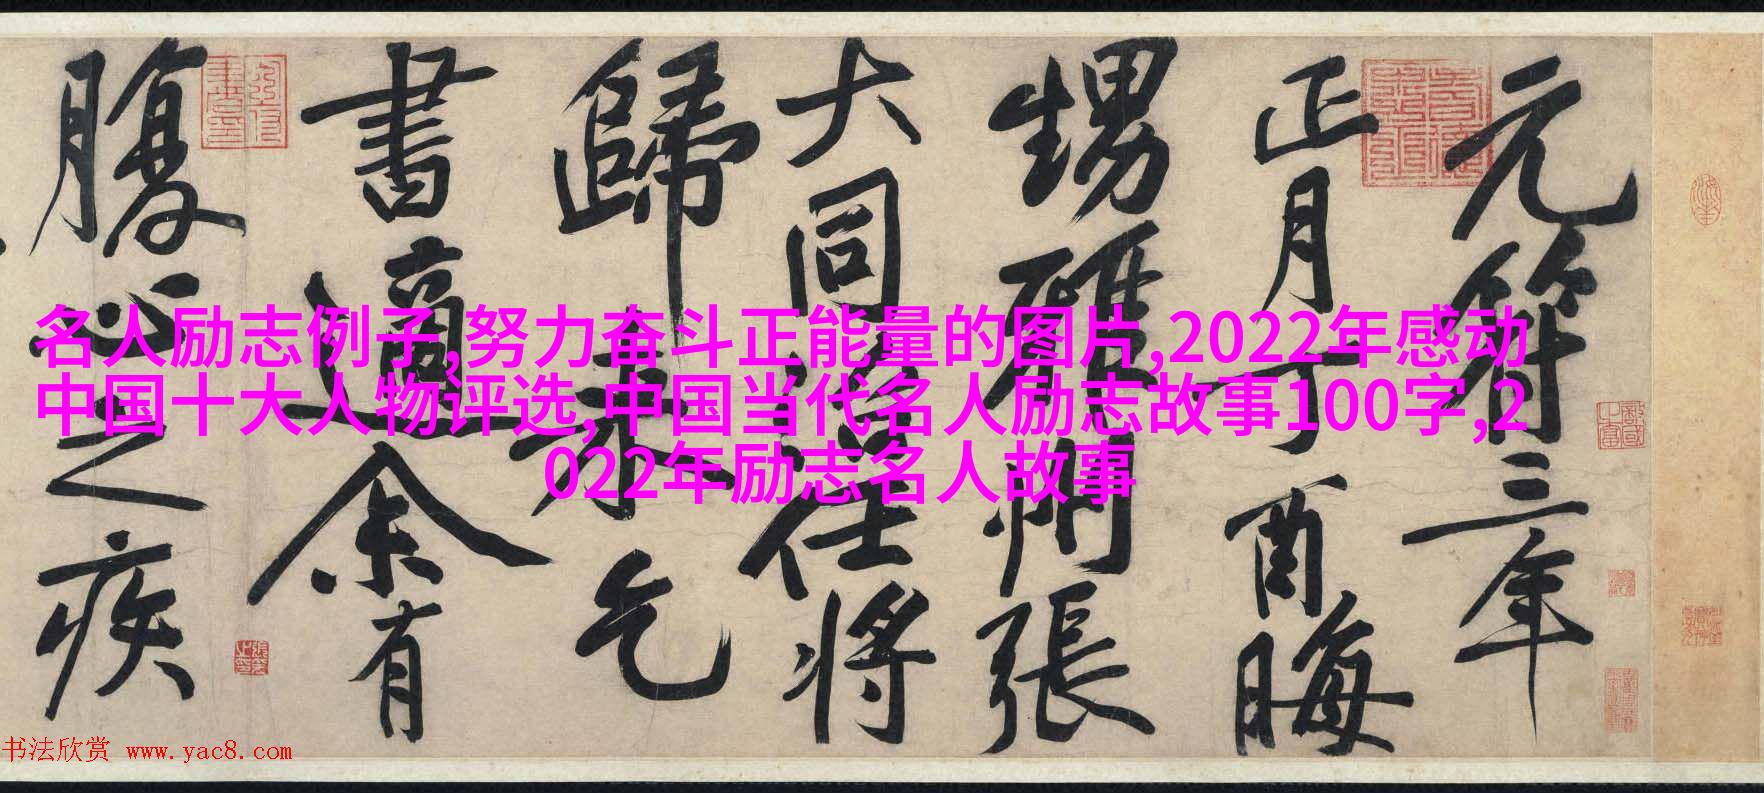 元符三年
正月丁酉晦
甥雍州張
大同治任將
歸来乞
書適余有
腹心之疾
名人励志例子,努力奋斗正能量的图片,2022年感动
中国十大人物评选,中国当代名人励志故事100字,2
022年励志名人故事
书法欣赏 www.yac8.com